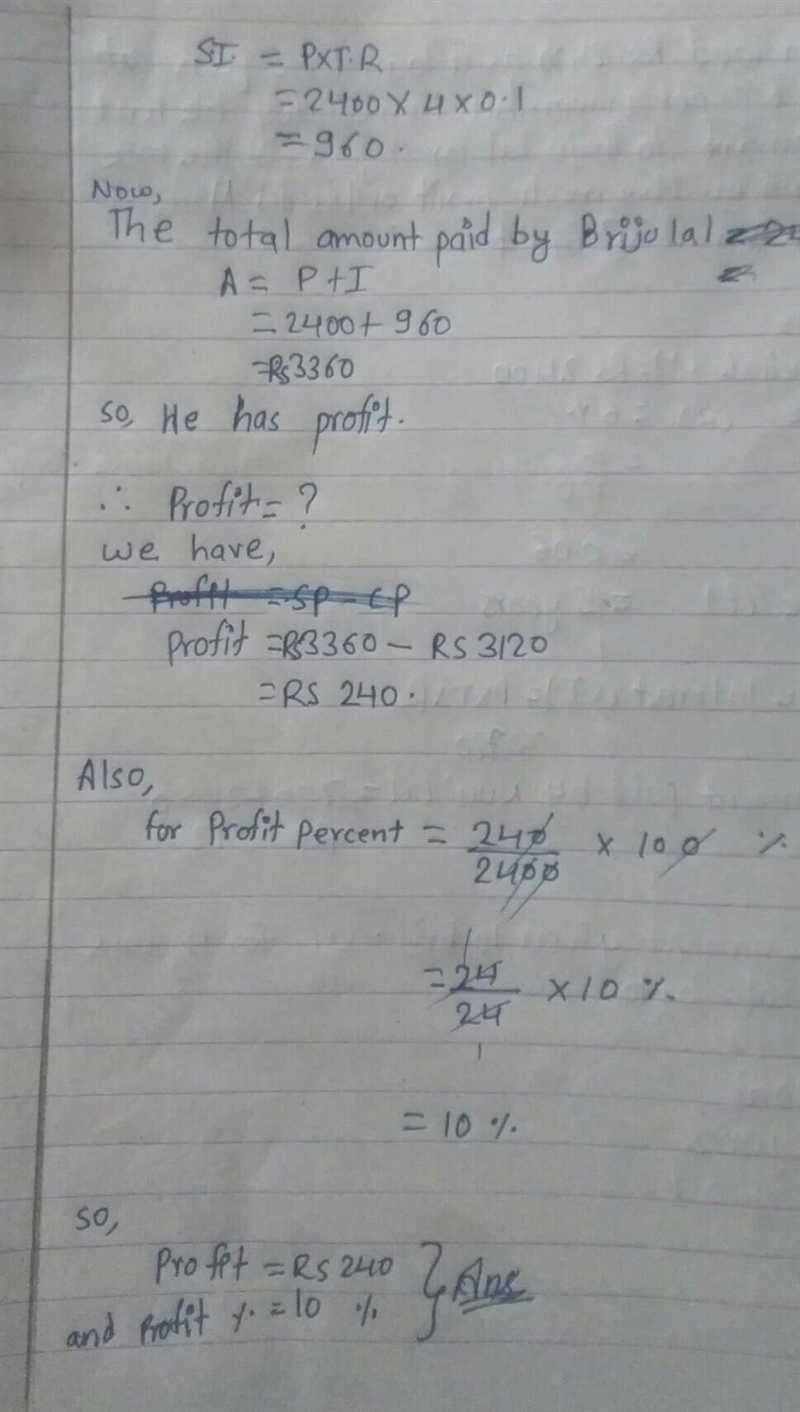 SI = PXT.R
= 2400 X 4 X 0.1
= 960.
Now,
The total amount paid by Brijulal
A = P+I
= 2400+ 960
=Rs3360
so, He has profit.
∴ Profit = ?
we have,
Profit = SP - CP
Profit =Rs3360 - RS 3120
= RS 240.
Also,
for Profit Percent = 240/2400 x 100 %
= 24/24 X 10 %.
= 10 %.
so,
Profit = RS 240
and Profit %. = 10 % } Ans